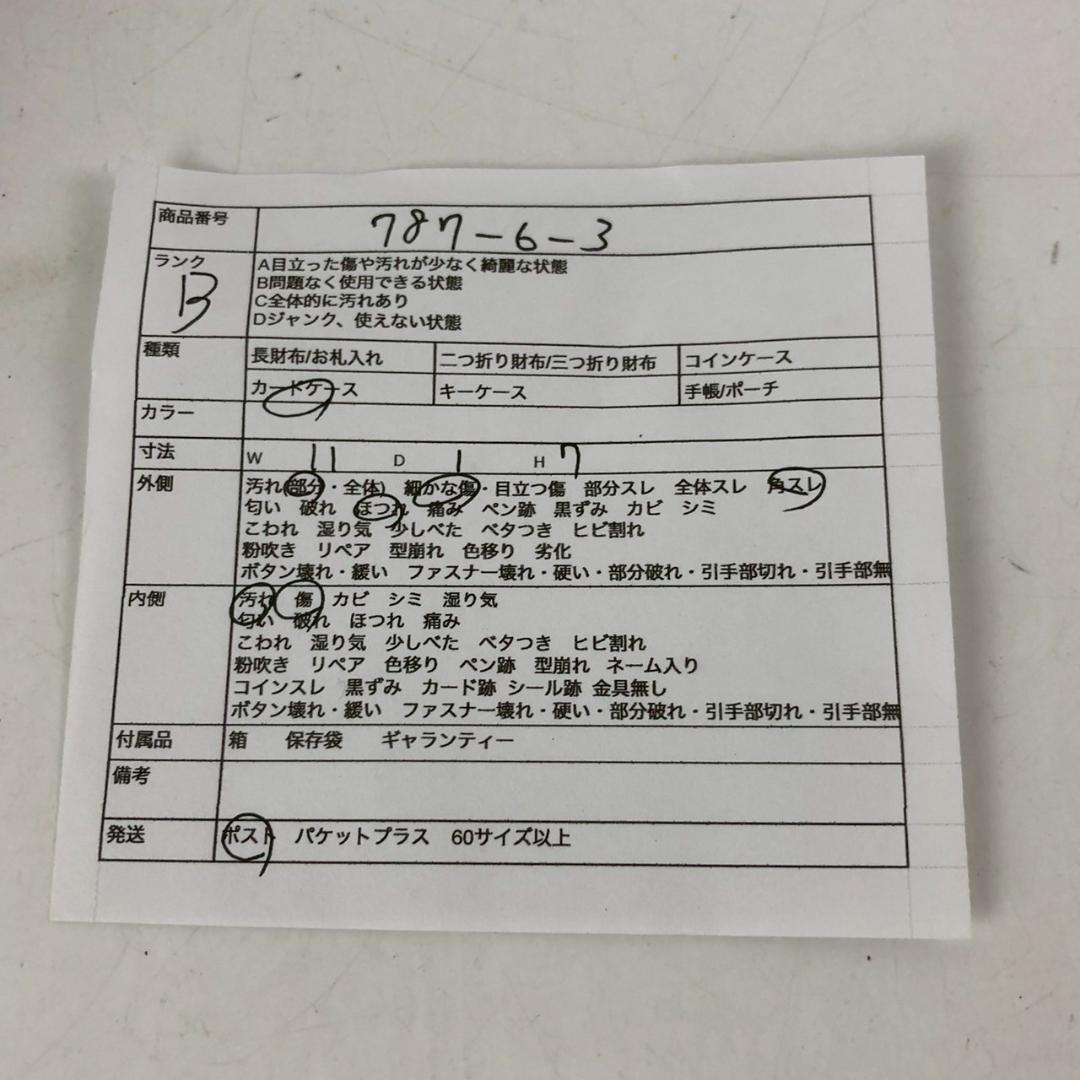 商品番号 787-6-3
ランク B
A目立った傷や汚れが少なく綺麗な状態
B問題なく使用できる状態
C全体的に汚れあり
Dジャンク、使えない状態
種類 長財布/お札入れ 二つ折り財布/三つ折り財布 コインケース
カードケース キーケース 手帳/ポーチ
カラー
寸法 W 11 D 1 H 7
外側 汚れ(部分・全体) 細かな傷・目立つ傷 部分スレ 全体スレ 角スレ
匂い 破れ ほつれ 痛み ペン跡 黒ずみ カビ シミ
こわれ 湿り気 少しべた ベタつき ヒビ割れ
粉吹き リペア 型崩れ 色移り 劣化
ボタン壊れ・緩い ファスナー壊れ・硬い・部分破れ・引手部切れ・引手部無
内側 汚れ 傷 カビ シミ 湿り気
匂い 破れ ほつれ 痛み
こわれ 湿り気 少しべた ベタつき ヒビ割れ
粉吹き リペア 色移り ペン跡 型崩れ ネーム入り
コインスレ 黒ずみ カード跡 シール跡 金具無し
ボタン壊れ・緩い ファスナー壊れ・硬い・部分破れ・引手部切れ・引手部無
付属品 箱 保存袋 ギャランティー
備考
発送 ポスト パケットプラス 60サイズ以上